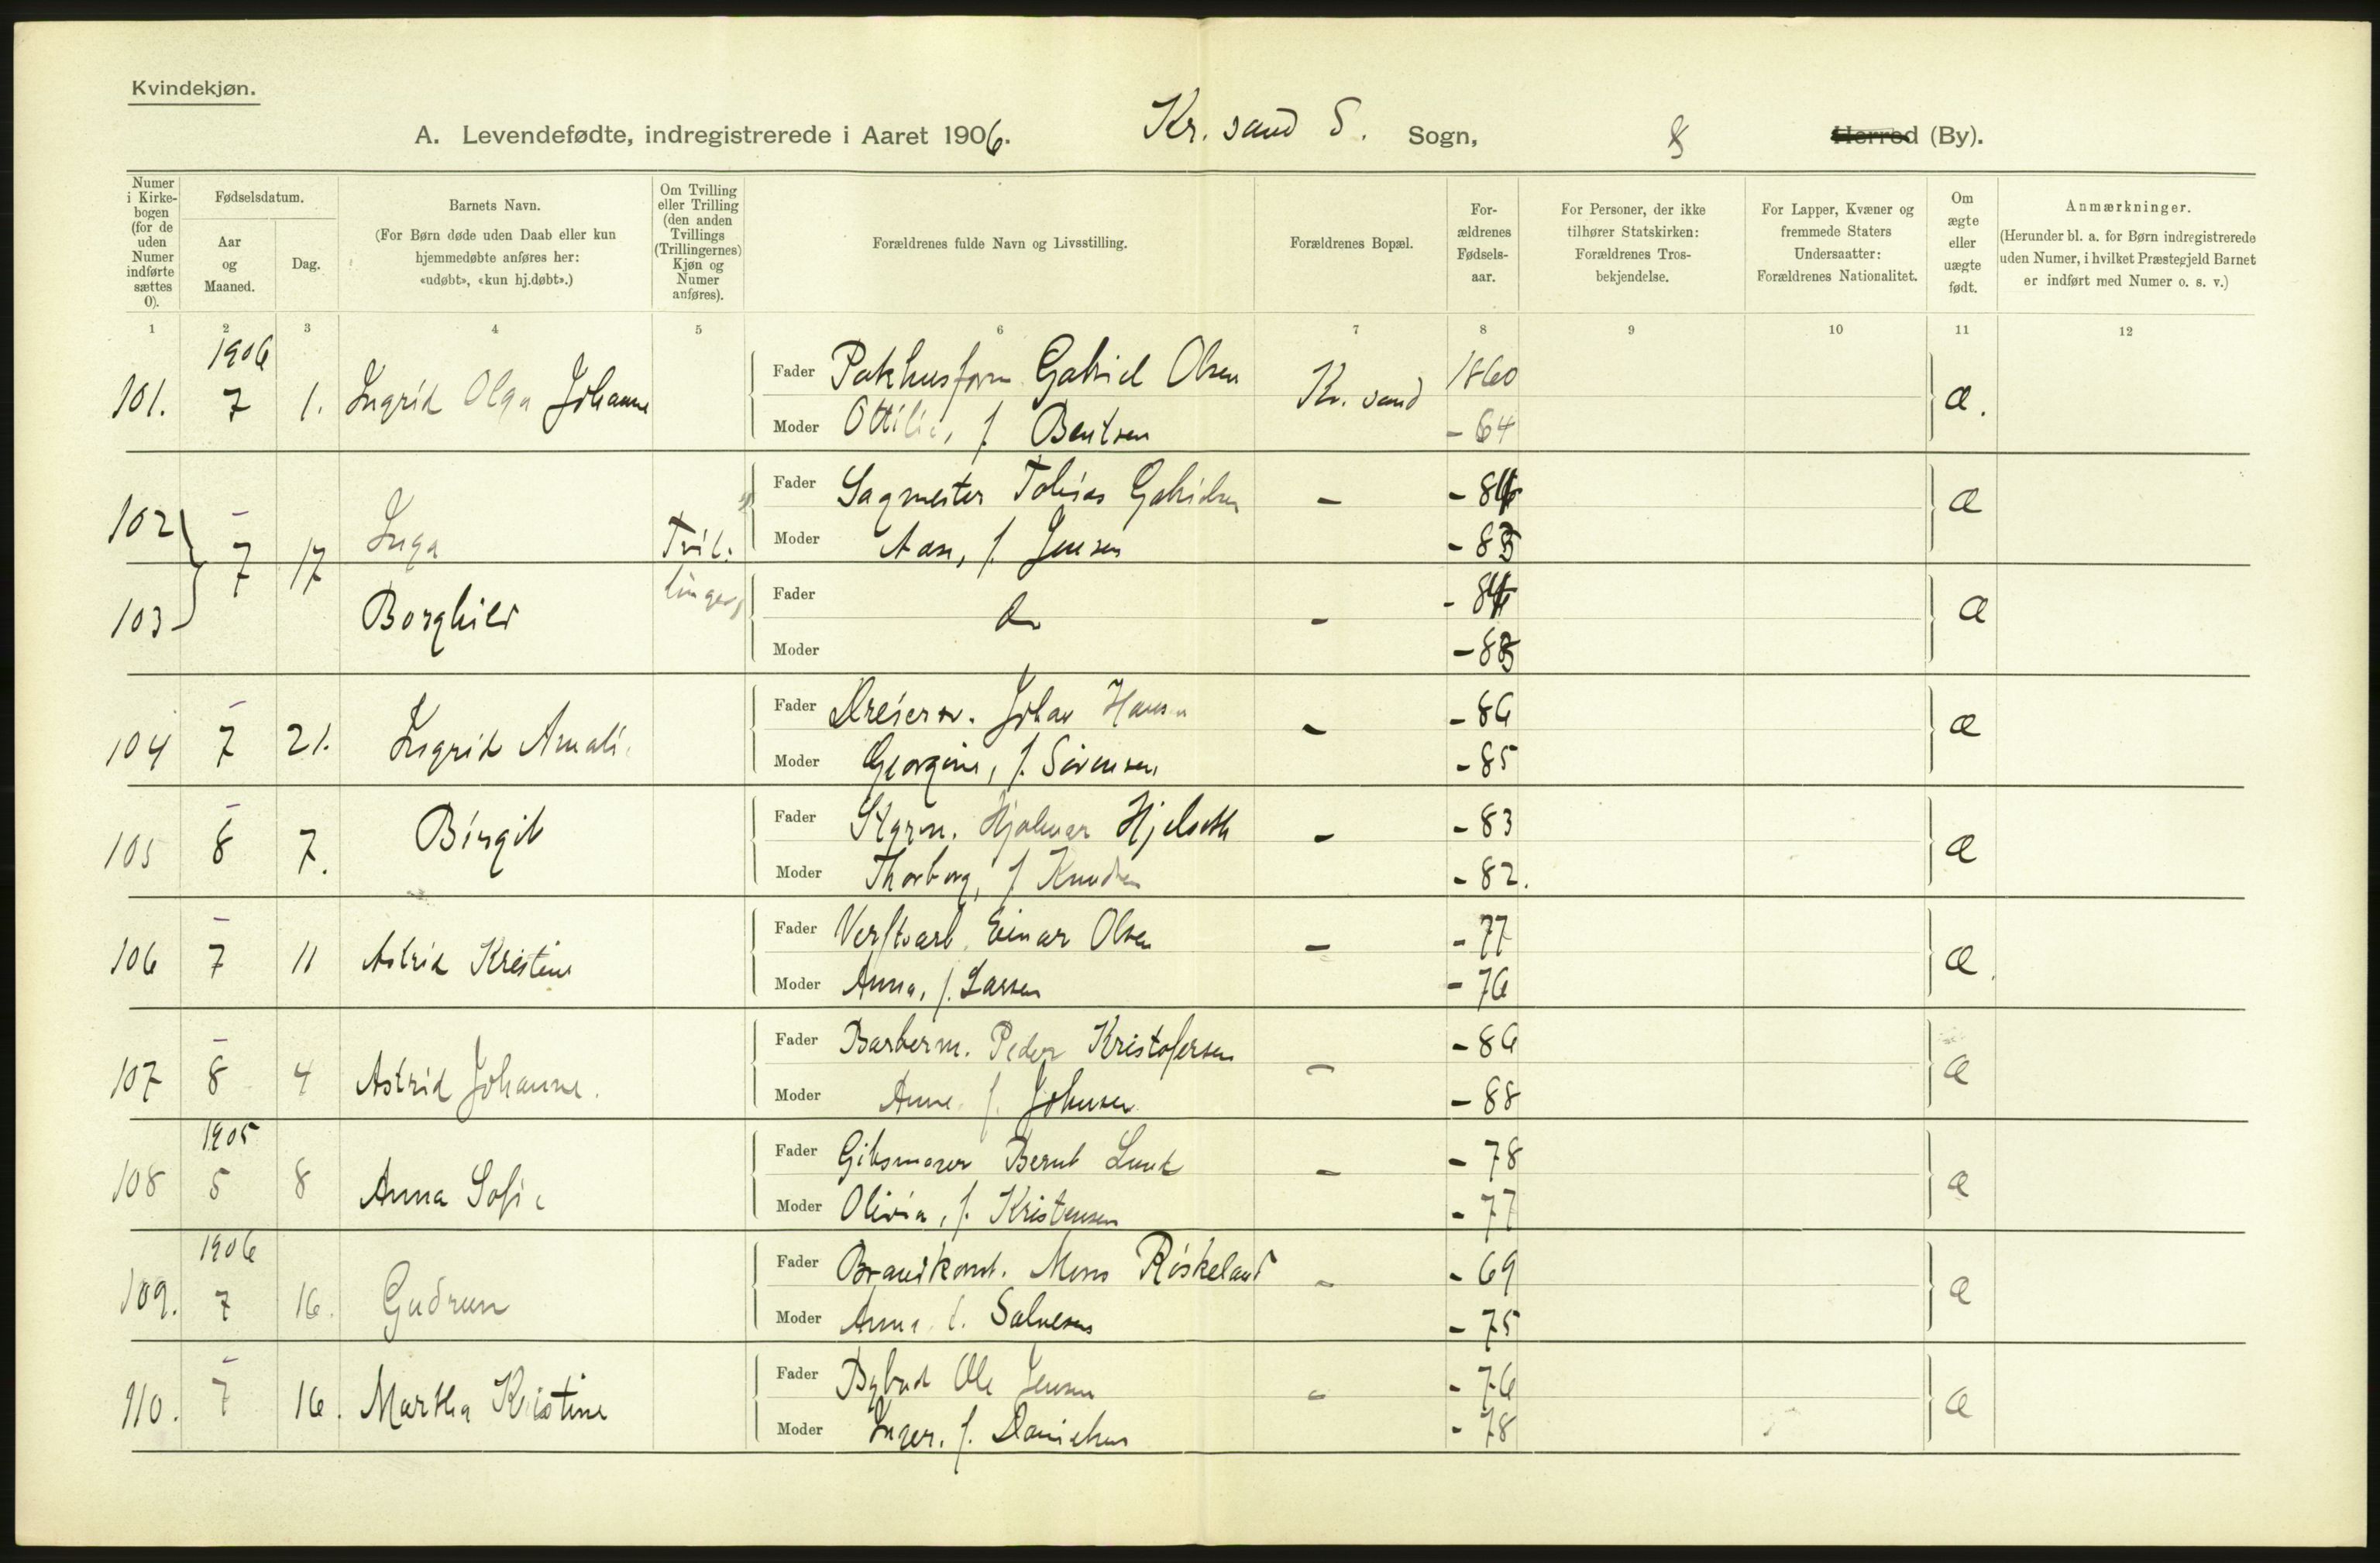 Kvindekjøn.
A. Levendefødte, indregistrerede i Aaret 1906. Kr. sand S. Sogn, Herred (By).
Numer i Kirke-bogen (for de uden Numer indførte sættes 0).
Fødselsdatum.
Aar og Maaned.
Dag.
Barnets Navn.
(For Børn døde uden Daab eller kun hjemmedøbte anføres her: «udøbt», «kun hj.døbt».)
Om Tvilling eller Trilling (den anden Tvillings (Trillingernes) Kjøn og Numer anføres).
Forældrenes fulde Navn og Livsstilling.
Forældrenes Bopæl.
For-ældrenes Fødsels-aar.
For Personer, der ikke tilhører Statskirken: Forældrenes Tros-bekjendelse.
For Lapper, Kvæner og fremmede Staters Undersaatter: Forældrenes Nationalitet.
Om ægte eller uægte født.
Anmærkninger.
(Herunder bl. a. for Børn indregistrerede uden Numer, i hvilket Præstegjeld Barnet er indført med Numer o. s. v.)
1 2 3 4 5 6 7 8 9 10 11 12
1906
101. 7 1. Ingrid Olga Johanne Fader Pakhusform Gabriel Olsen Kr. sand 1860 æ.
Moder Ottilie, f. Bentsen - 64
102 - 7 17 Inga Tvil. Fader Sagmester Tobias Gabrielsen - - 84 æ
Moder Aase, f. Jensen - 83
103 Borghild linger Fader do - - 84 æ
Moder - 83
104 - 7 21. Ingrid Amali Fader Dreiersv. Johan Hansen - - 86 æ
Moder Georgine, f. Sørensen - 85
105 - 8 7. Birgit Fader Styrm. Hjalmar Hjelseth - - 83 æ
Moder Thorborg, f Knudsen - 82.
106 - 7 11 Astrid Kristine Fader Verftsarb. Einar Olsen - - 77 æ.
Moder Anna, f. Larsen - 76
107 - 8 4 Astrid Johanne. Fader Barberm. Peder Kristofersen - - 86 æ
Moder Anne f. Johnsen - 88
1905
108 5 8 Anna Sofie Fader Gibsmager Bernt Lund - - 78 æ
Moder Olivia, f. Kristensen - 77
1906
109. 7 16. Gudrun Fader Brandkonst. Mons Røskeland - - 69 æ
Moder Anna f. Salvesen - 75
110. - 7 16. Martha Kristine Fader Bybud Ole Jensen - - 76 æ
Moder Inger. f. Danielsen - 78